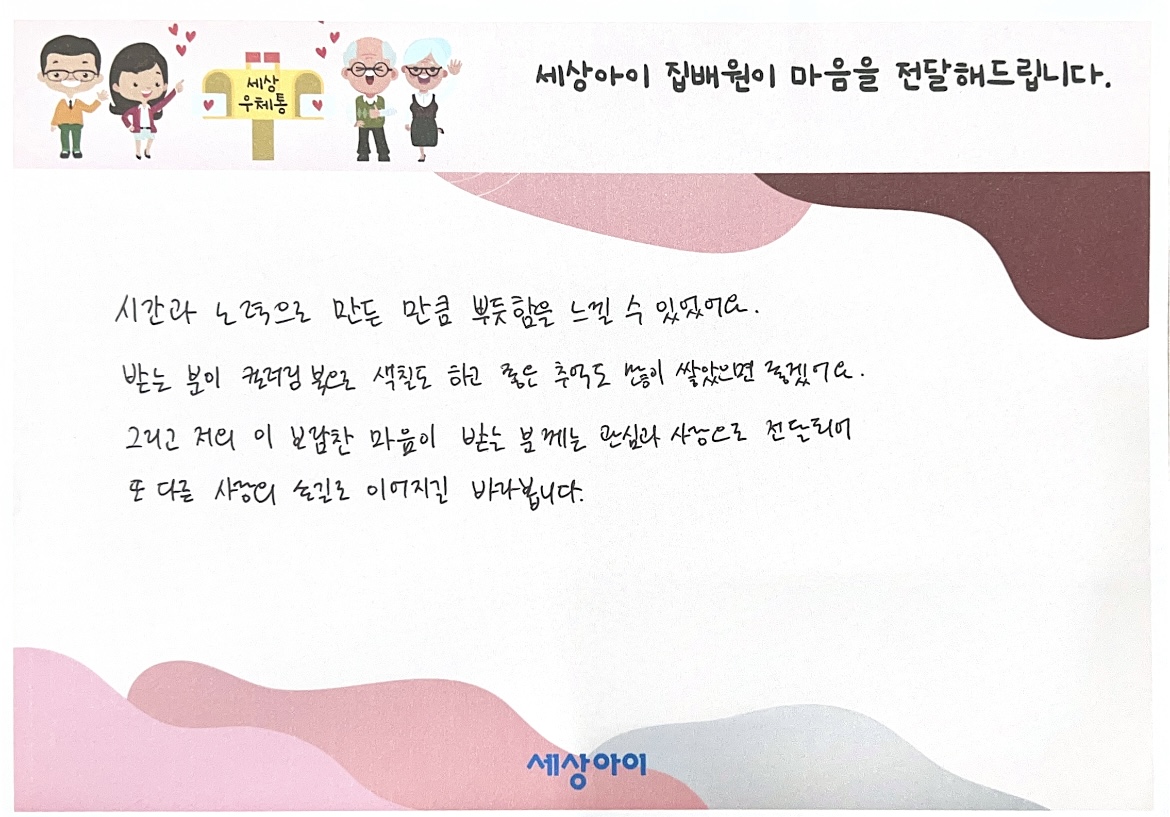 세상아이 집배원이 마음을 전달해드립니다.
세상
우체통
시간과 노력으로 만든 만큼 뿌듯함을 느낄 수 있었어요.
받는 분이 컬러링 북으로 색칠도 하고 좋은 추억도 많이 쌓았으면 좋겠어요.
그리고 저의 이 보람찬 마음이 받는 분께는 관심과 사랑으로 전달되어
또 다른 사랑의 손길로 이어지길 바라봅니다.
세상아이